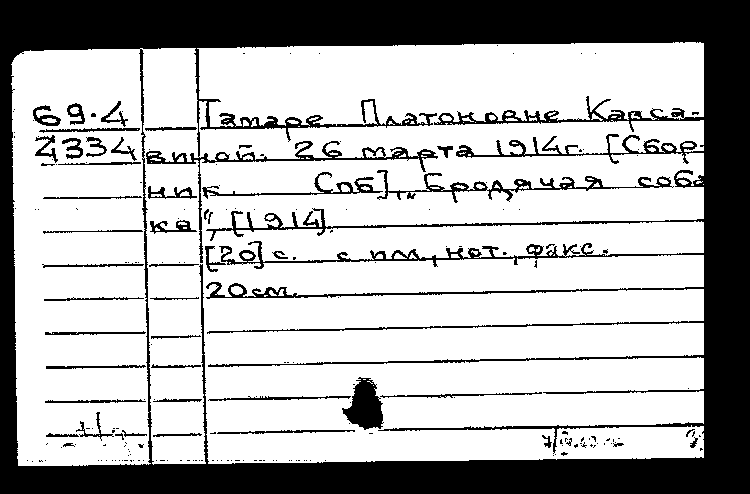 69.4 Тамаре Платоновне Карса-
4334 виной. 26 марта 1914г. [Сбор-
ник. Спб], „Бродячая соба
ка", [1914].
[20] с. с илл., нот., факс.
20 см.